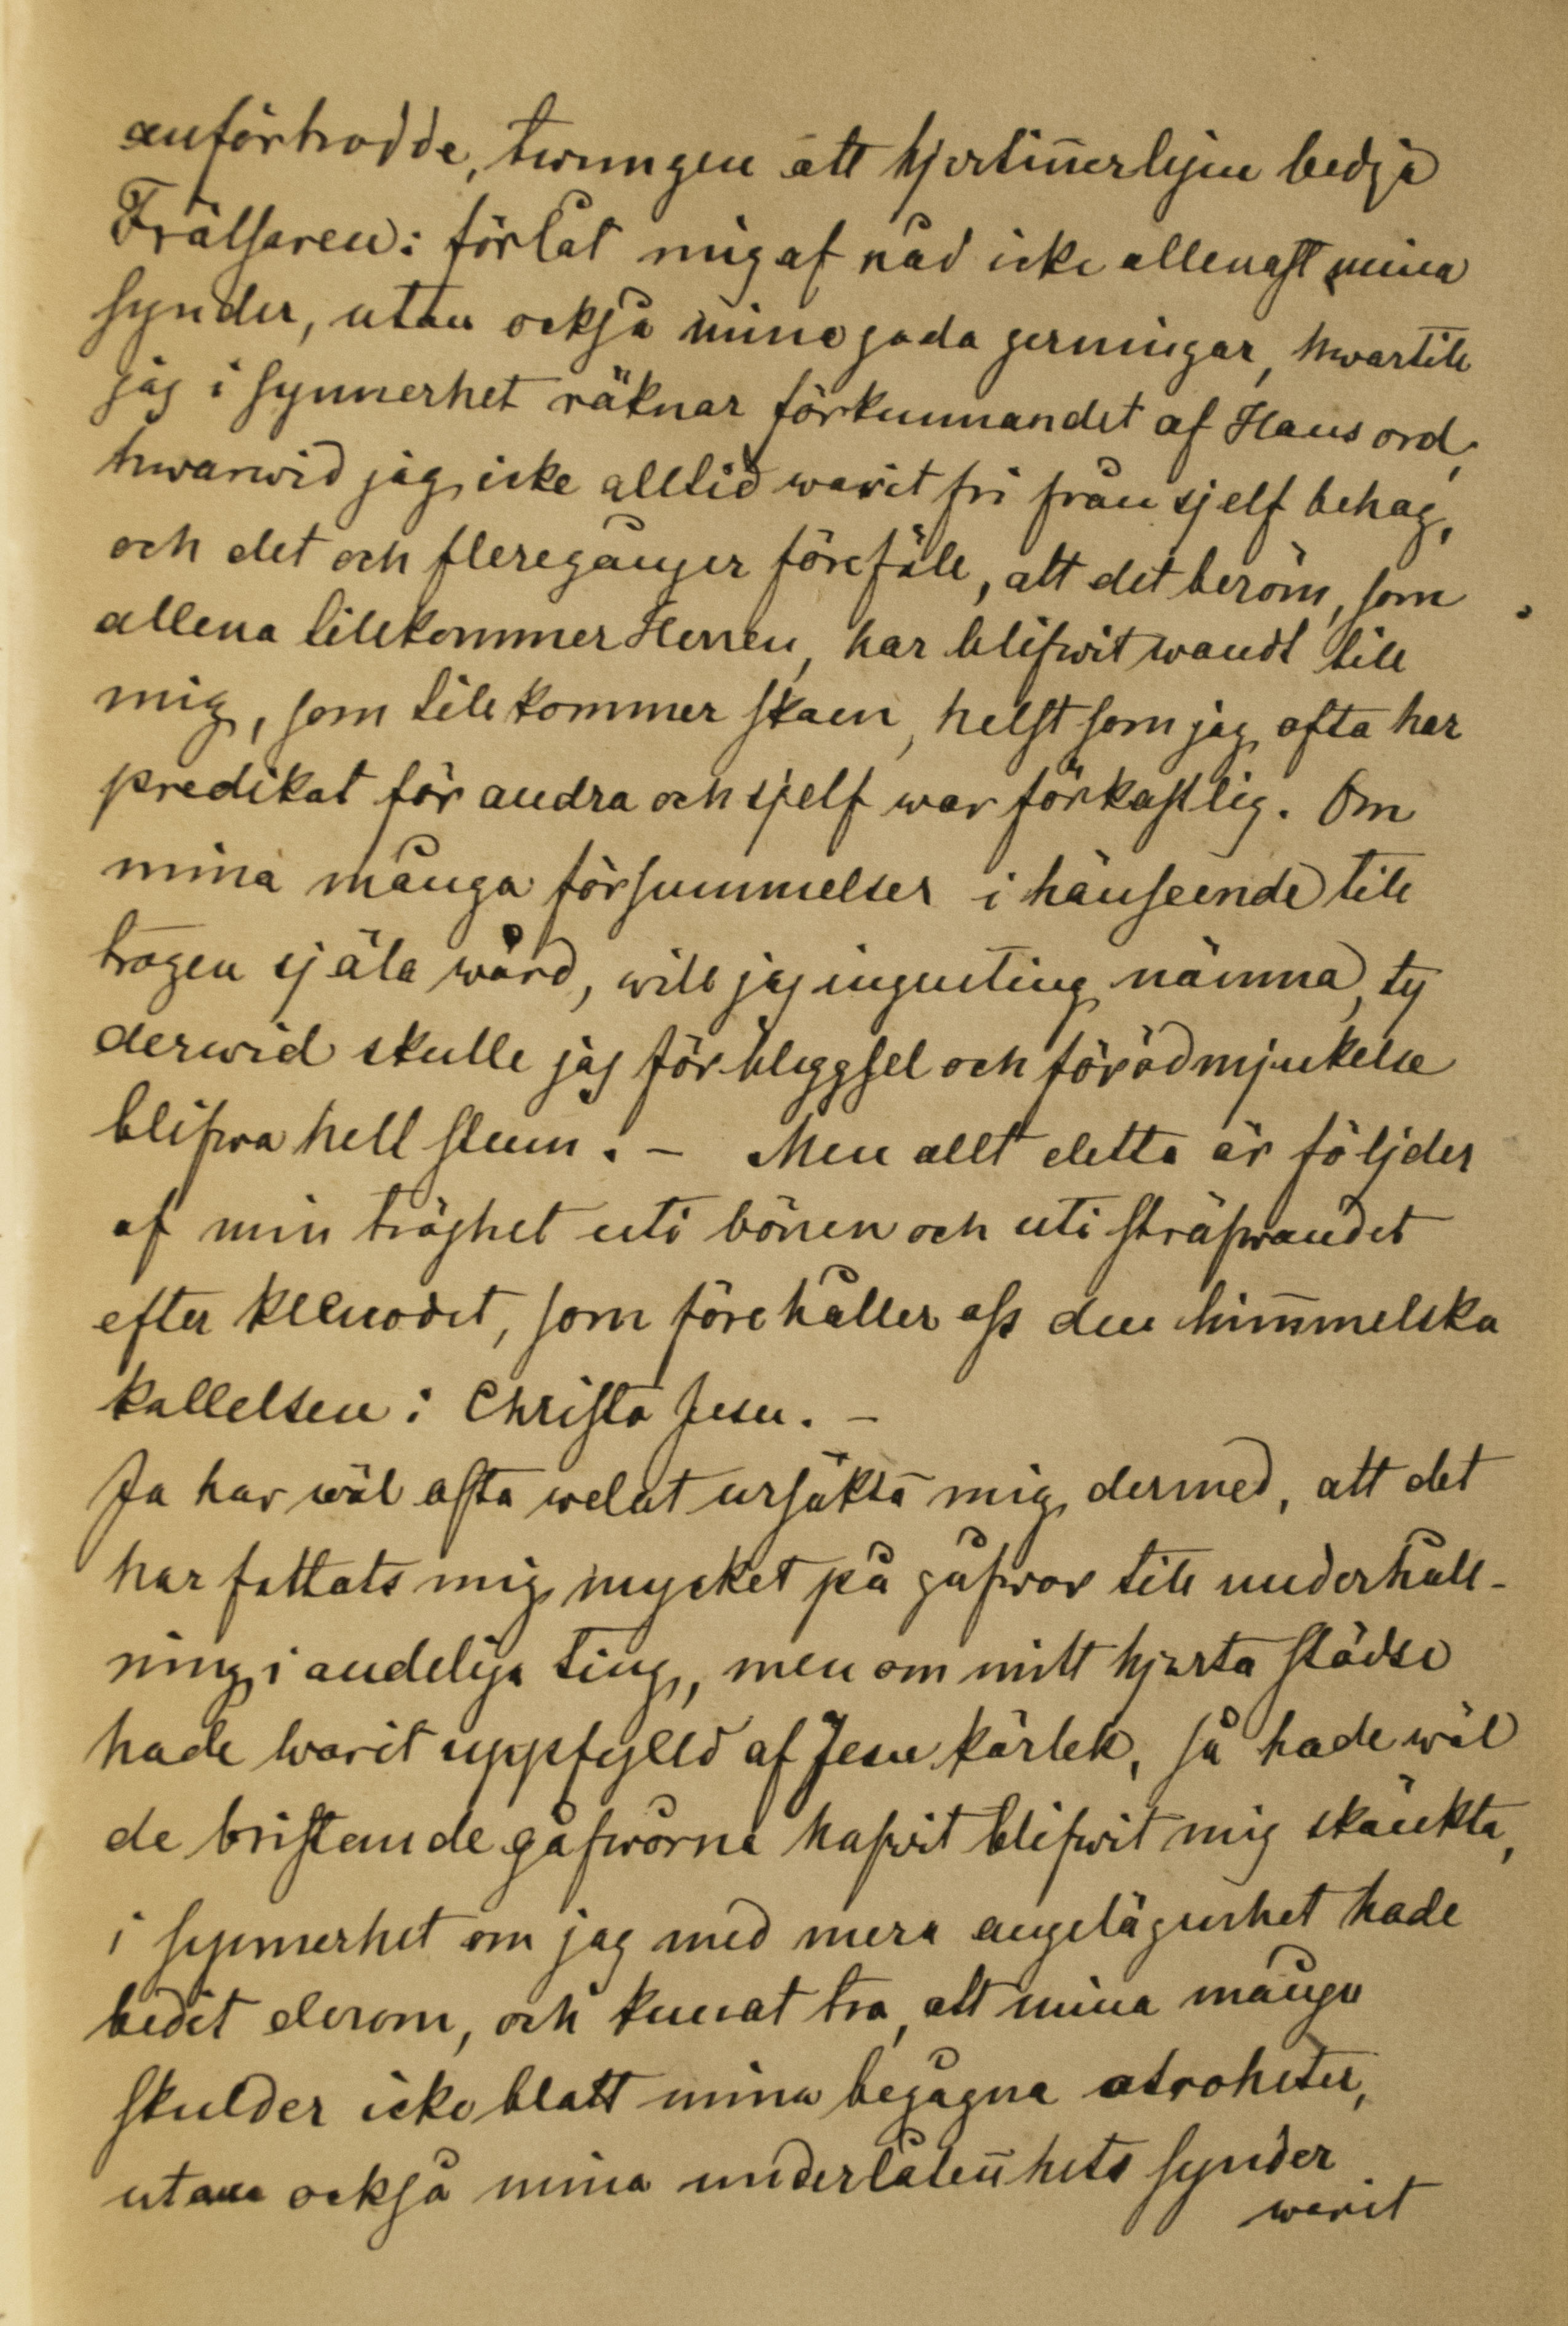 anförtrodde, twungen att hjertinnerligen bedja
Frälsaren: förlåt mig af nåd icke allenast mina
synder, utan också mina goda gerningar, hwartill
jag i synnerhet räknar förkunnandet af Hans ord,
hwarwid jag icke alltid warit fri från sjelf behag,
och det och fleregånger föreföll, att det beröm, som
allena tillkommer Herren, har blifwit wändt till
mig, som tillkommer skam, helst som jag ofta har
predikat för andra och sjelf war förkastlig. Om
mina många försummelser i hänseende till
trogen själa wård, will jag ingenting nämna, ty
derwid skulle jag för blyggsel och förödmjukelse
blifwa helt stum. – Men allt detta är följder
af min tröghet uti bönen och uti sträfwandet
efter klenodet, som förehåller oss den himmelska
kallelsen i Christo Jesu. –
Ja har wäl ofta welat ursäkta mig dermed, att det
har fattats mig mycket på gåfwor till underhåll-
ning i andeliga ting, men om mitt hjerta städse
hade warit uppfylld af Jesu kärlek, så hade wäl
de bristande gåfworna hafwit blifwit mig skänkta,
i synnerhet om jag med mera angelägenhet hade
bedit derom, och kunnat tro, att mina många
skulder icke blott mina begågna otroheter,
utan också mina underlåtenhets synder
warit